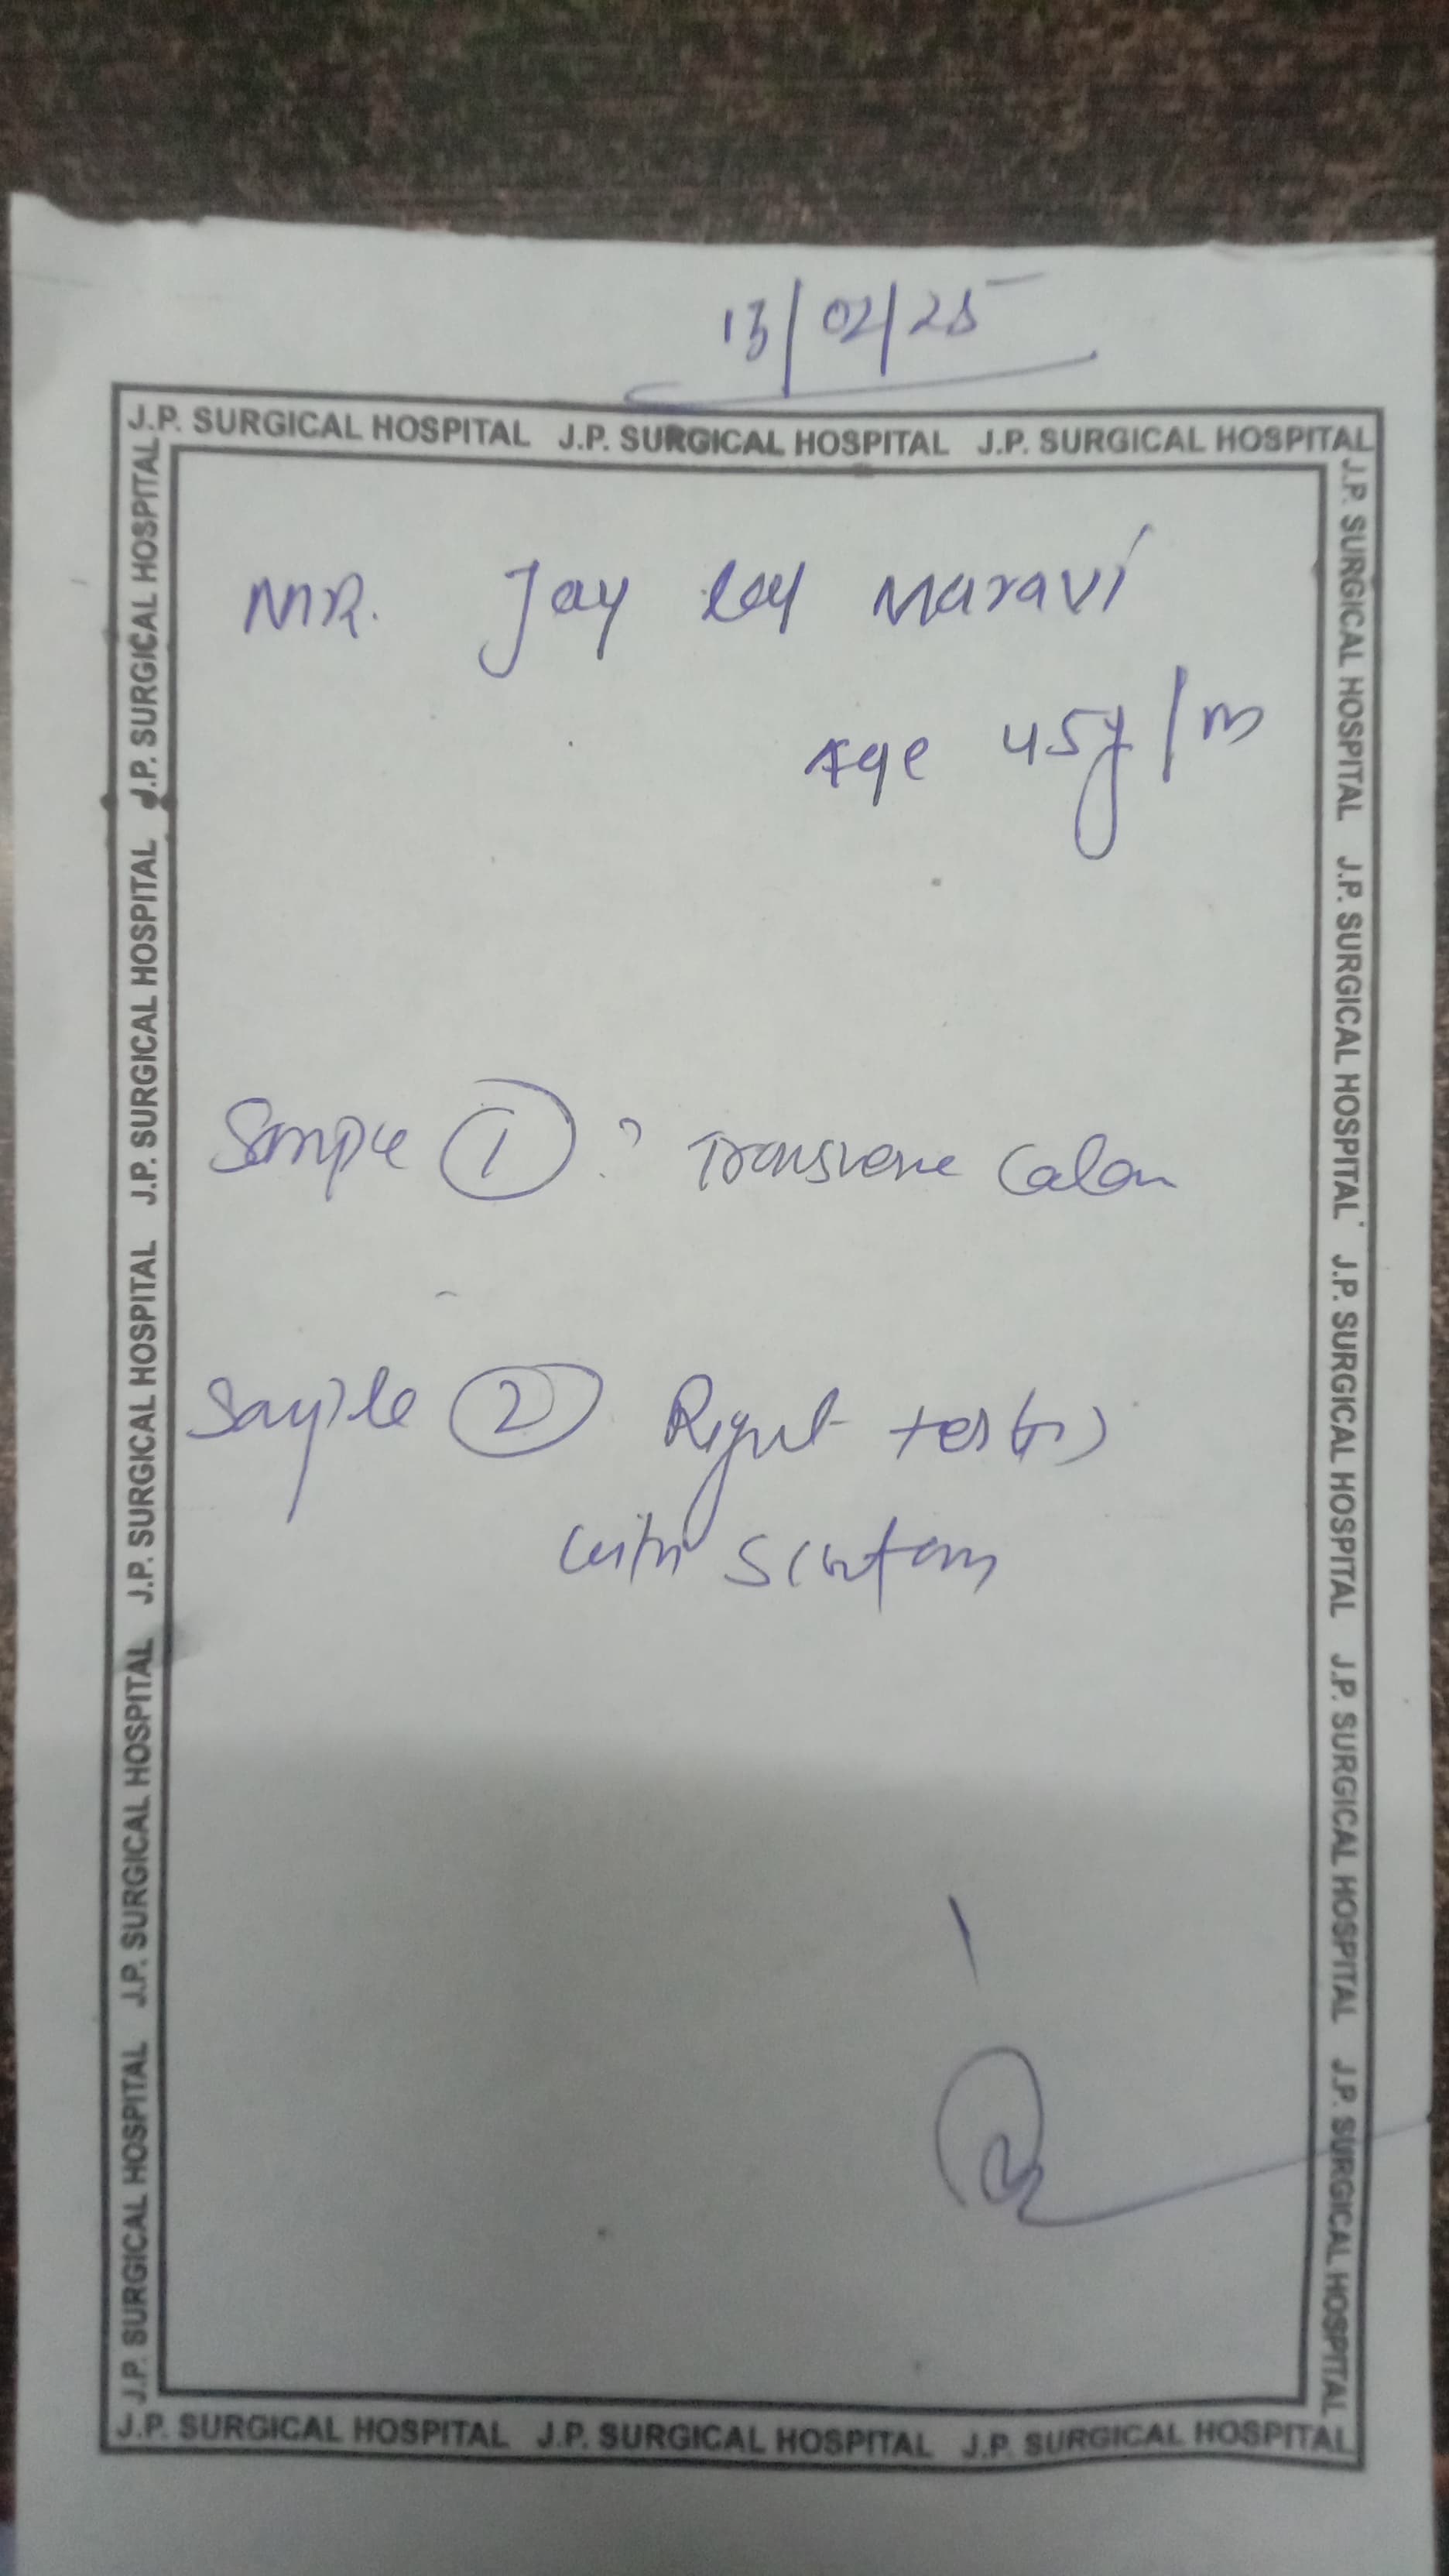 13/02/25
J.P. SURGICAL HOSPITAL J.P. SURGICAL HOSPITAL J.P. SURGICAL HOSPITAL
J.P. SURGICAL HOSPITAL J.P. SURGICAL HOSPITAL J.P. SURGICAL HOSPITAL J.P. SURGICAL HOSPITAL J.P. SURGICAL HOSPITAL
J.P. SURGICAL HOSPITAL J.P. SURGICAL HOSPITAL J.P. SURGICAL HOSPITAL J.P. SURGICAL HOSPITAL J.P. SURGICAL HOSPITAL
MR. Jay Maravi
Age 45y/m
Sample 1 ? Transverse Colon
Sample 2 Right testis
with scrotum
J.P. SURGICAL HOSPITAL J.P. SURGICAL HOSPITAL J.P. SURGICAL HOSPITAL